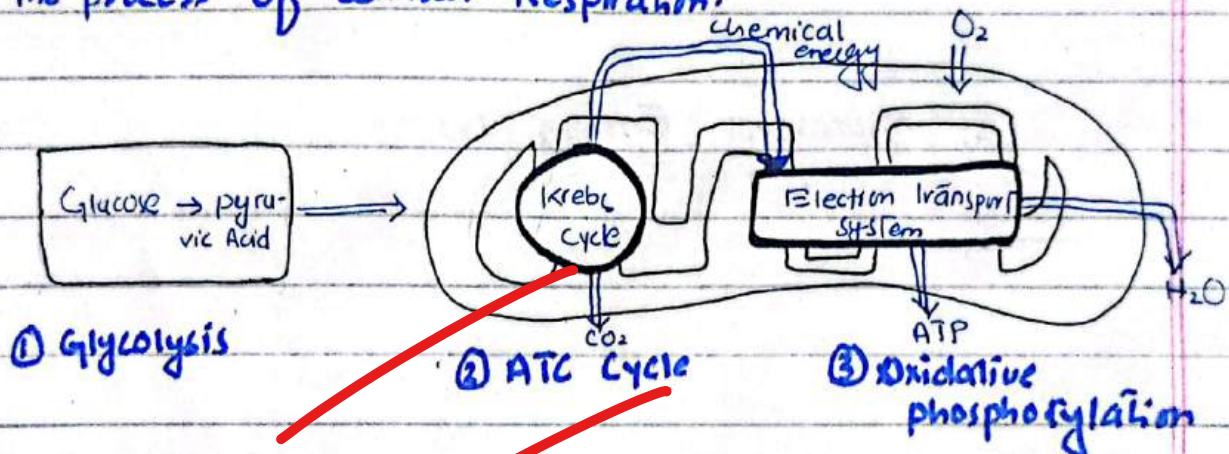 process of Respiration.
chemical
energy
O₂
Glucose → pyru-
vic Acid
Krebs
cycle
Electron Transport
system
H₂O
CO₂
ATP
① Glycolysis
② ATC Cycle
③ Oxidative
phosphorylation